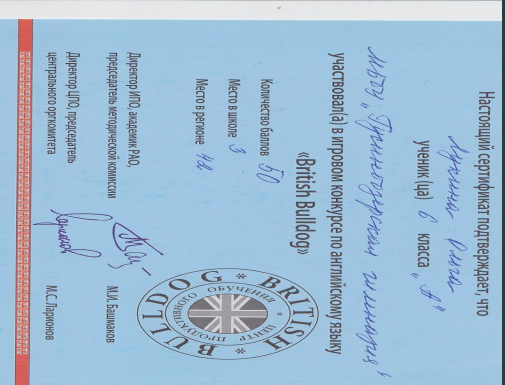 Настоящий сертификат подтверждает, что
ученик (ца) 6 класса „А"
МБОУ гимназия
участвовал(а) в игровом конкурсе по английскому языку
«British Bulldog»
Количество баллов 50
Место в школе 3
Место в регионе 42
Директор ИПО, академик РАО,
председатель методической комиссии
М.И. Башмаков
Директор ЦПО, председатель
центрального оргкомитета
М.С. Ларионов
BRITISH * BULLDOG *
ЦЕНТР ПРОДУКТИВНОГО ОБУЧЕНИЯ